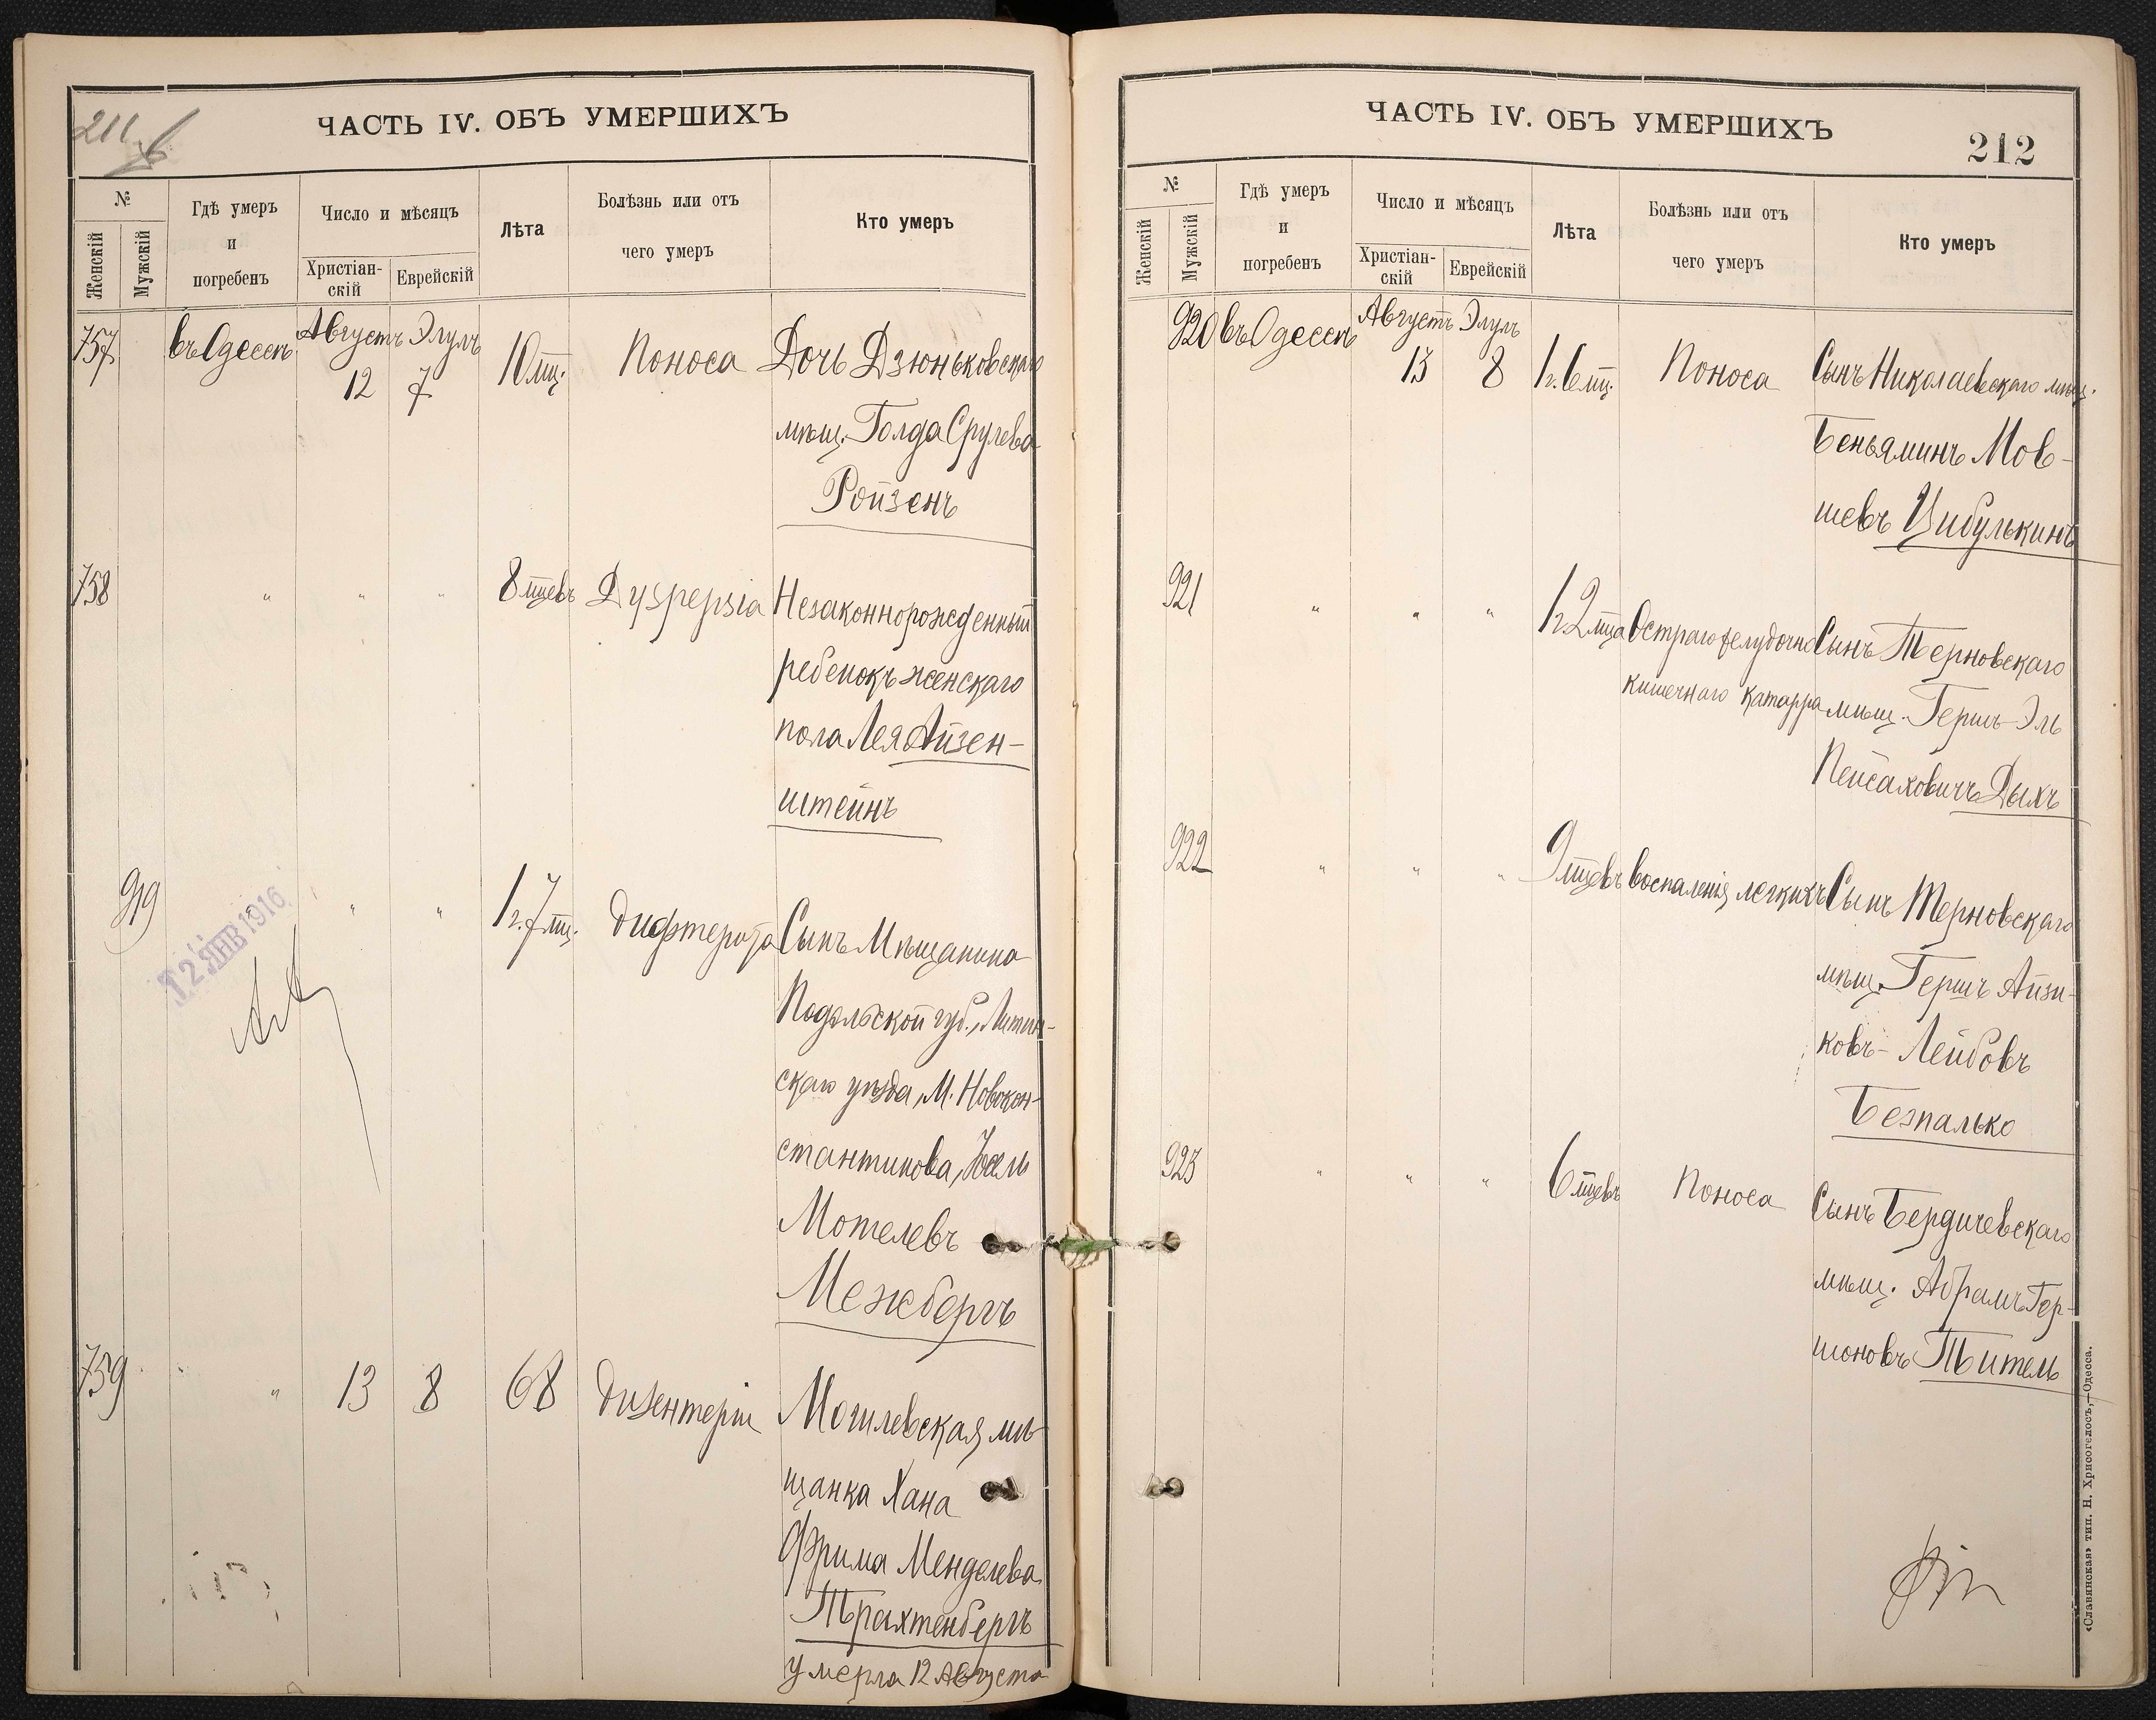 211 б
ЧАСТЬ IV. ОБЪ УМЕРШИХЪ
№
Женскій
Мужскій
Гдѣ умеръ
и
погребенъ
Число и мѣсяцъ
Христіан-
скій
Еврейскій
Лѣта
Болѣзнь или отъ
чего умеръ
Кто умеръ
757 въ Одессѣ Августъ 12 Элулъ 7 10 мц. Поноса Дочь Дзюньковскаго
мѣщ. Голда Срулева
Ройзенъ
758 " " " 8 мцевъ Dyspepsia Незаконнорожденный
ребенокъ женскаго
пола Лея Айзен-
штейнъ
919 " " " 1 г. 7 мц. Дифтерита Сынъ Мѣщанина
Подольской губ., Литин-
скаго уѣзда, М. Новокон-
стантинова,
Мотелевъ
Межбергъ
12 ЯНВ 1916
759 " 13 8 68 Дизентеріи Могилевская мѣ-
щанка Хана
Фрима Менделева
Трахтенбергъ
умерла 12 Августа
ЧАСТЬ IV. ОБЪ УМЕРШИХЪ
212
№
Женскій
Мужскій
Гдѣ умеръ
и
погребенъ
Число и мѣсяцъ
Христіан-
скій
Еврейскій
Лѣта
Болѣзнь или отъ
чего умеръ
Кто умеръ
920 въ Одессѣ Августъ 13 Элулъ 8 1 г. 6 мц. Поноса Сынъ Николаевскаго мѣщ.
Беньяминъ Мов-
шевъ Цибулькинъ
921 " " " 1 г. 2 мца Остраго желудочно Сынъ Терновскаго
кишечнаго катарра мѣщ. Гершъ-Эль
Пейсаховичъ Дыхъ
922 " " " 9 мцевъ воспаленія легкихъ Сынъ Терновскаго
мѣщ. Гершъ Айзи-
ковъ-Лейбовъ
Безпалько
923 " " " 6 мцевъ Поноса Сынъ Бердичевскаго
мѣщ. Абрамъ Гер-
шоновъ Титель
«Славянская» тип. Н. Хрисогелосъ,—Одесса.